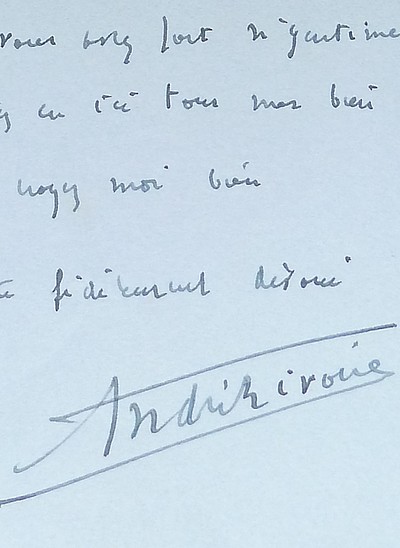 vous avez fait si gentime
en ici tous mes bien
royez moi bien
fidèlement dévoué
André Rivoire